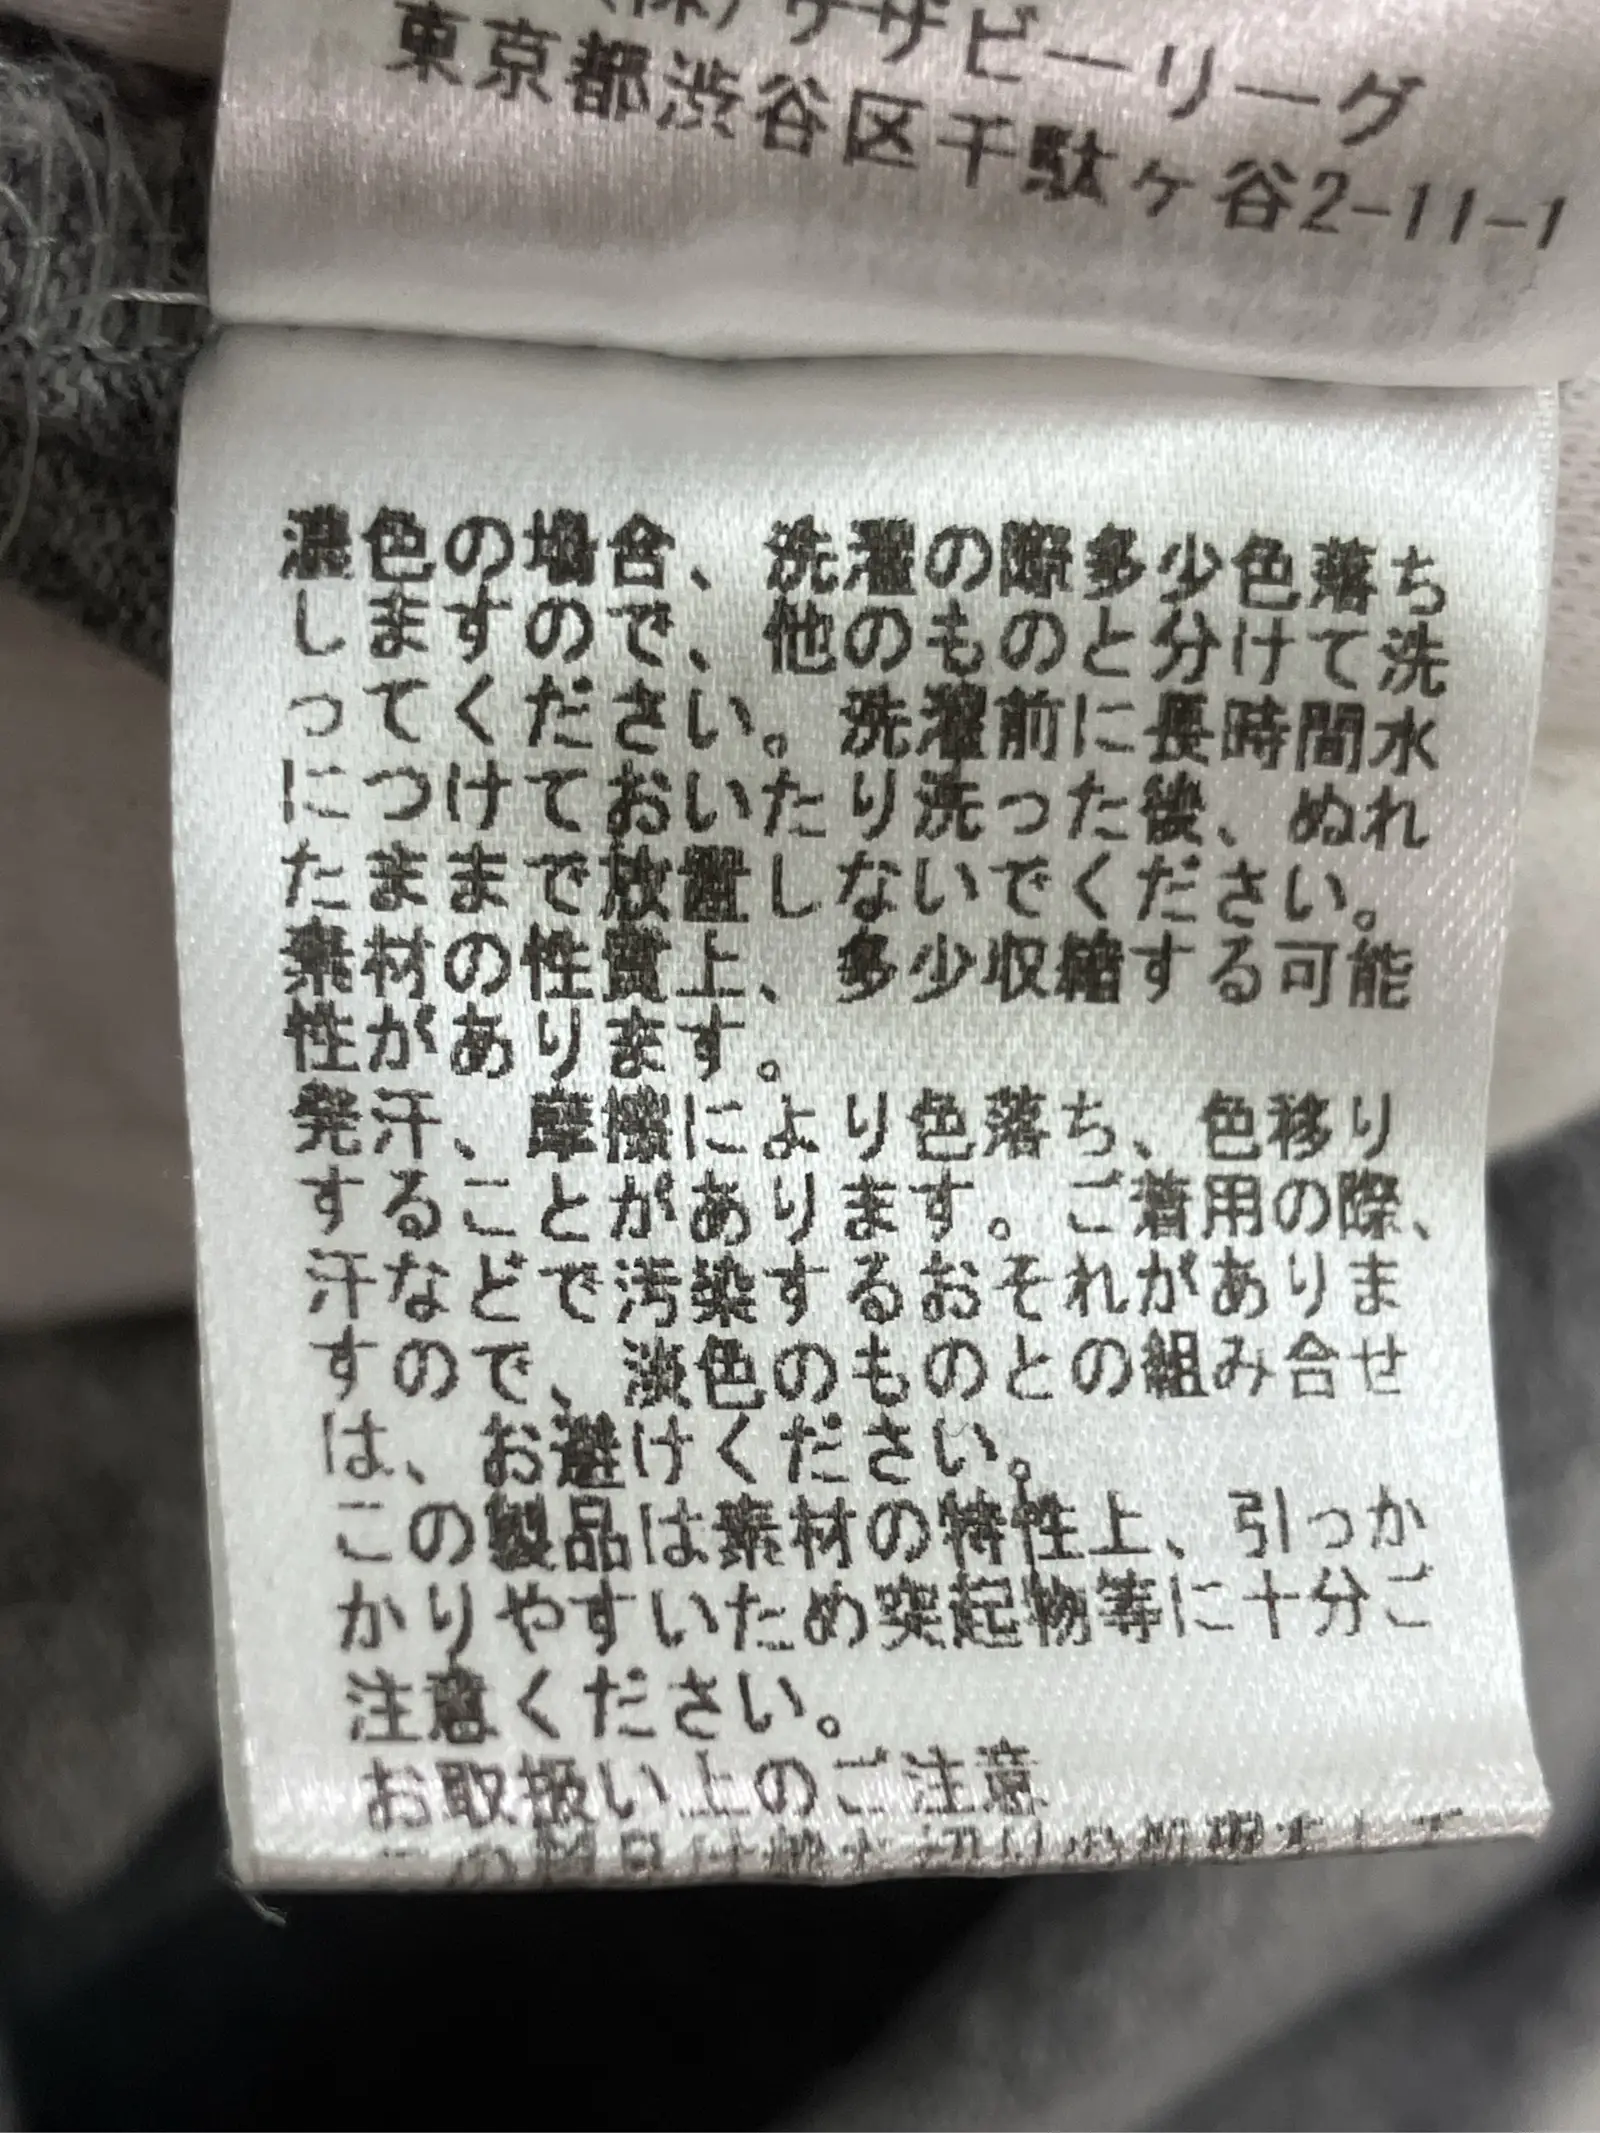 (株)サザビーリーグ
東京都渋谷区千駄ヶ谷2-11-1
濃色の場合、洗濯の際多少色落ち
しますので、他のものと分けて洗
ってください。洗濯前に長時間水
につけておいたり洗った後、ぬれ
たままで放置しないでください。
素材の性質上、多少収縮する可能
性があります。
発汗、摩擦により色落ち、色移り
することがあります。ご着用の際、
汗などで汚染するおそれがありま
すので、淡色のものとの組み合せ
は、お避けください。
この製品は素材の特性上、引っか
かりやすいため突起物等に十分ご
注意ください。
お取扱い上のご注意